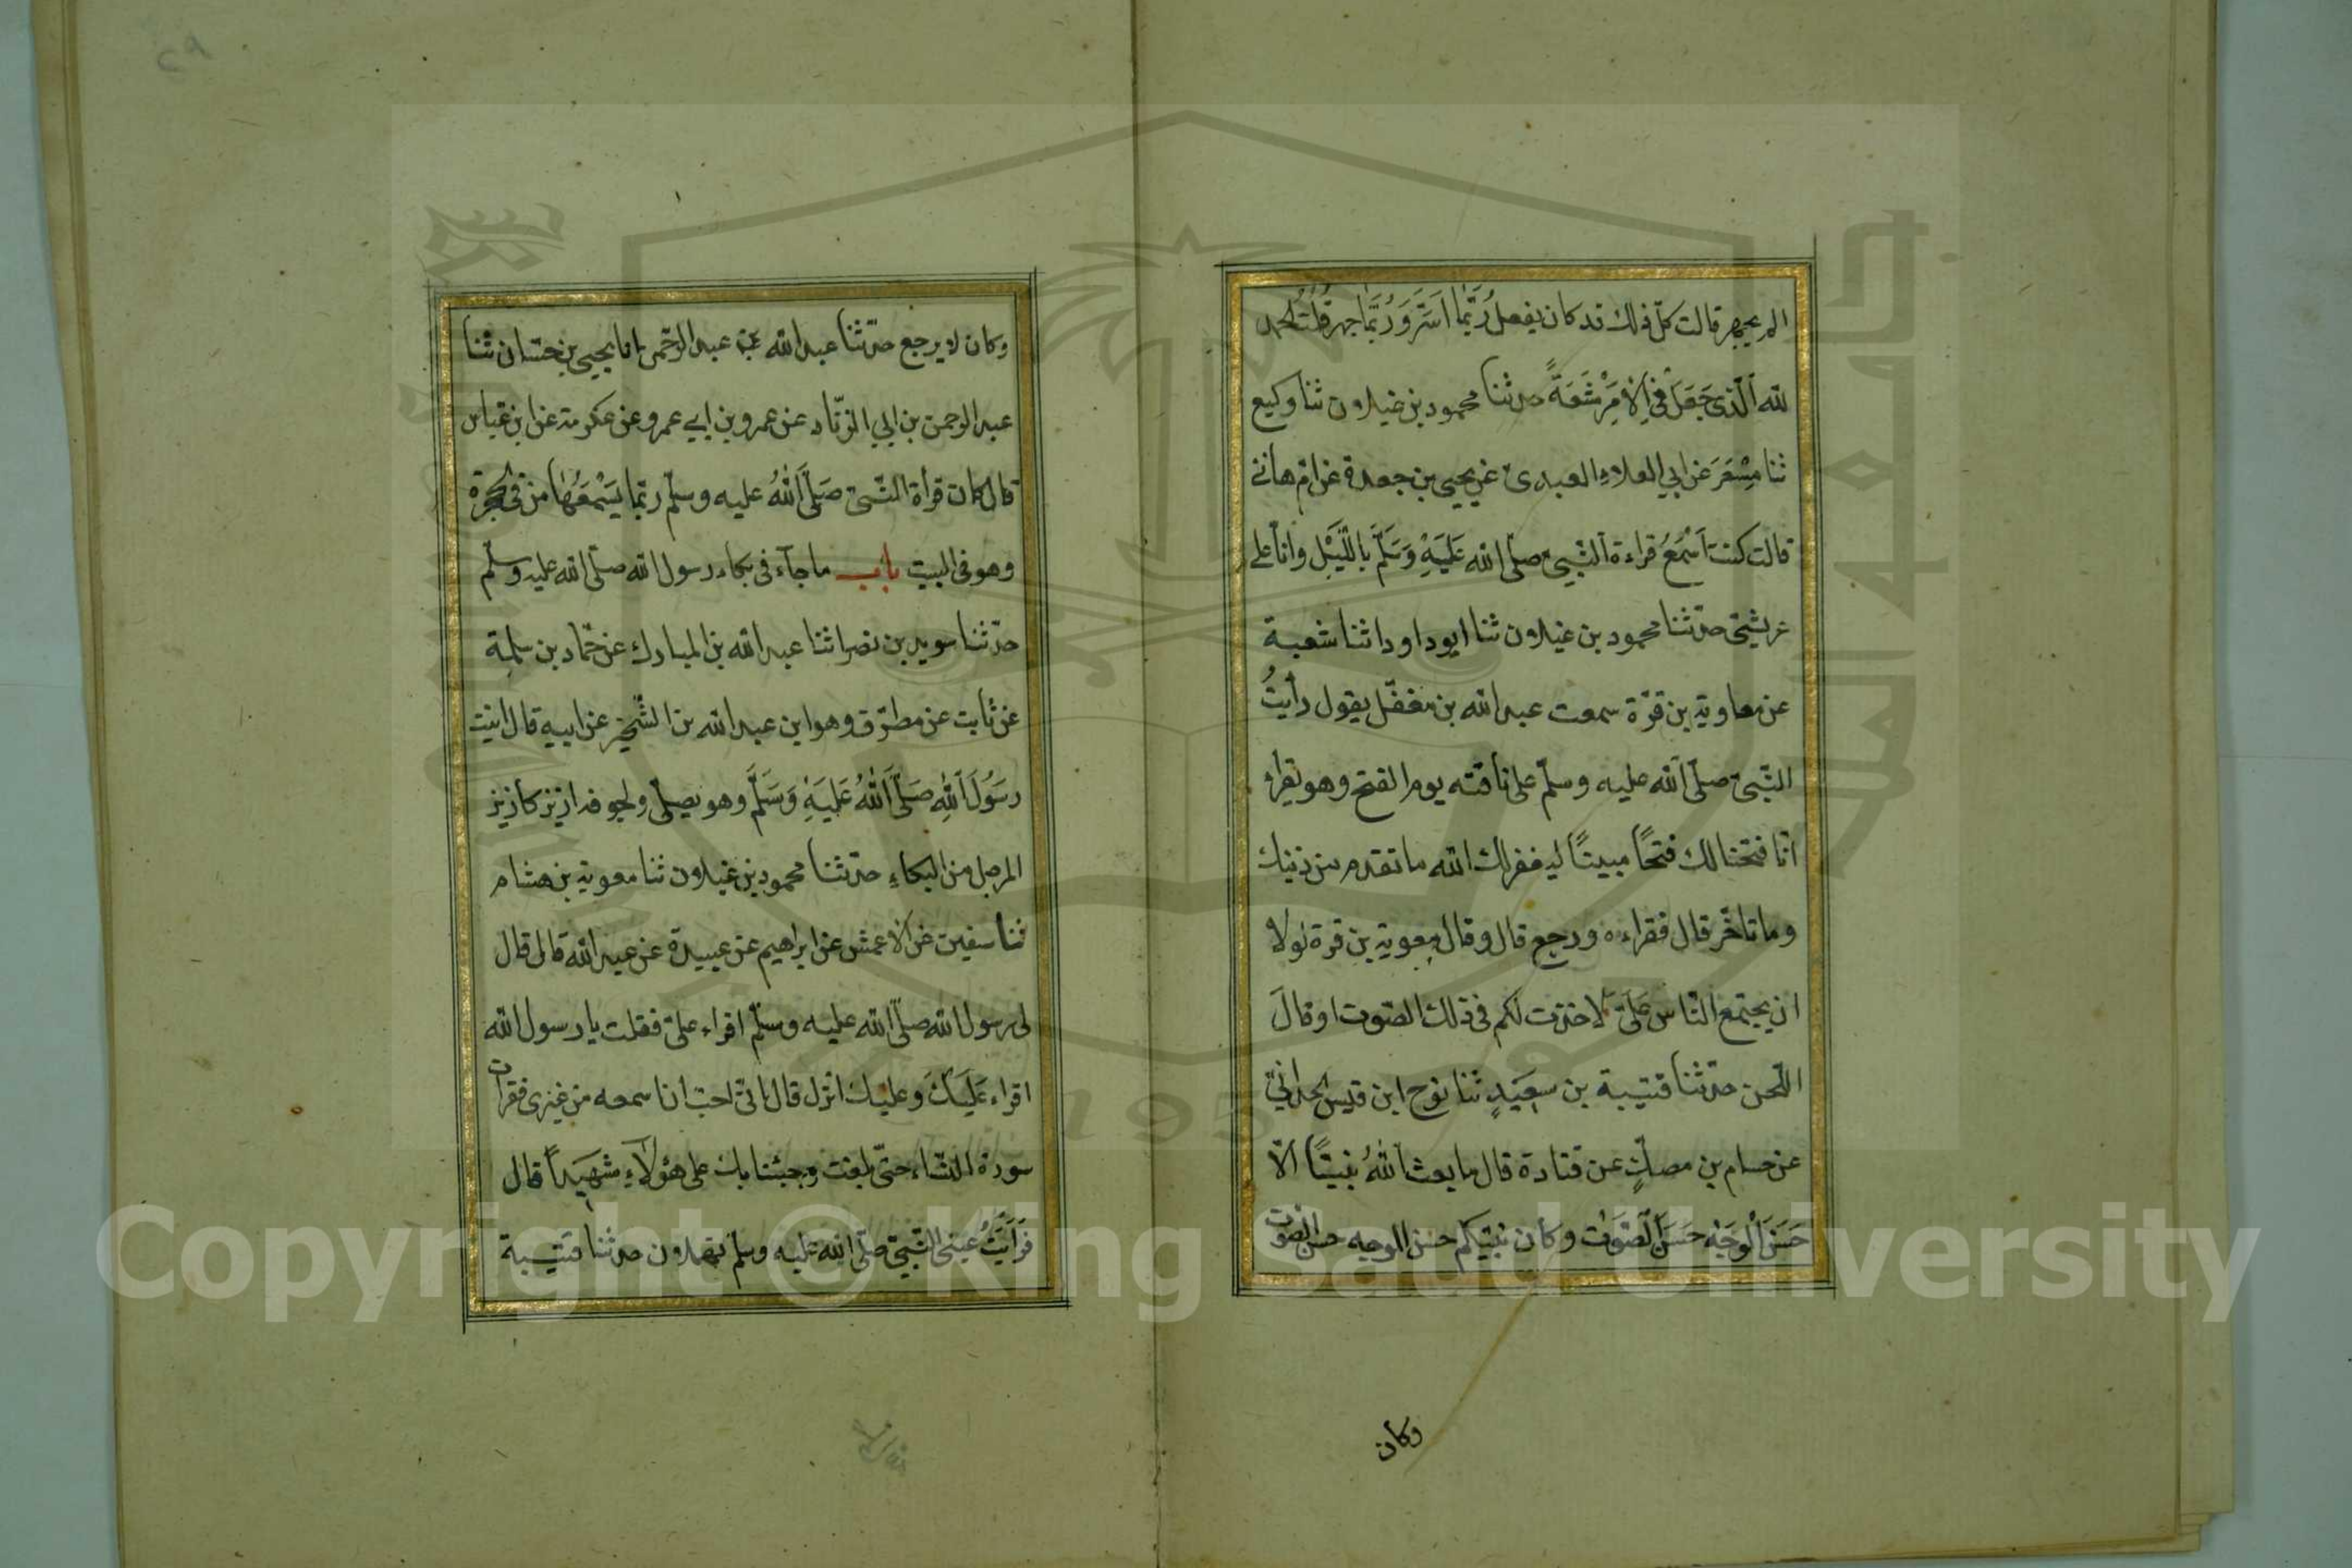 الم يجهر قالت كلّ ذلك قد كان يفعل رُبَّمَا اَسَرَّ وَرُبَّمَا جهر قُلْتُ الحمد
لله اَلّذى جَعَلَ فِي الْاَمْرِ سَعَةً حدثنا محمود بن غيلان ثنا وكيع
ثنا مِسْعَرَ عن ابي العلاءِ العبدى عن يحيى بن جعدة عن امّ هانئ
قالت كنت اَسْمَعُ قراءة النّبيّ صلّى الله عَلَيْهِ وَسَلَّمَ بِاللَّيْلِ وانا على
عريشى حدّثنا محمود بن غيلان ثنا ابوداود اثنا شعبة
عن معاوية بن قرّة سمعت عبد الله بن مغفّل يقول رأيتُ
النّبىّ صلّى الله عليه وسلّم على ناقته يوم الفتح وهو يقراء
انّا فتحنا لك فتحًا مبينًا ليغفر لك الله ما تقدم من ذنبك
وما تاخّر قال فقراءه ورجع قال وقال معوية بن قرة لولا
ان يجتمع النّاس عَلَىَّ لاخذت لكم فى ذلك الصّوت او قالَ
اللّحن حدّثنا قتيبة بن سعيدٍ ثنا نوح ابن قيس الحدانيّ
عن حسام بن مصكٍّ عن قتادة قال ما بعث اللهُ نبيًّا الّا
حَسَنَ اَلْوَجْهِ حَسَنَ الصَّوْتِ وكان نبيّكم حسن الوجه حسن الصّوت
وكان
وكان لا يرجع حدّثنا عبد الله بن عبد الرّحمن انا يحيى بن حسّان ثنا
عبد الرحمن بن ابي الزنّاد عن عمرو بن ابي عمرو عن عكرمة عن ابن عبّاس
قال كان قرأة النّبىّ صَلّى اللهُ عليه وسلّم ربّما يَسْمَعُهَا من فى الحجرة
وهو فى البيت باب ما جآء فى بكاء رسول الله صلّى الله عليه وسلّم
حدّثنا سويد بن نصر اثنا عبد الله بن المبارك عن حمّاد بن سلمة
عن ثابت عن مطرّف وهو ابن عبد الله بن الشّخير عن ابيه قال اتيت
رسَوُلَ اللهِ صَلّى اللهُ عَلَيْهِ وَسَلَّمَ وهو يصلّى ولجوفه ازيز كازيز
المرجل من البكاءِ حدّثنا محمود بن غيلان ثنا معوية بن هشام
ثنا سفين عن الاعمش عن ابراهيم عن عبيدة عن عبد الله قال قال
لى رسول الله صلّى الله عليه وسلّم اقراء علىّ فقلت يا رسول الله
اقراء عَلَيْكَ وعليك انزل قال انّى احبّ ان اسمعه من غيرى فقرات
سورة النّساء حتّى بلغت وجئنا بك على هؤلاءِ شَهِيداً قال
فَرَاَيْتُ عينى النّبىّ صلّى الله عليه وسلّم تهملان حدثنا قتيبة
Copyright © King Saud University